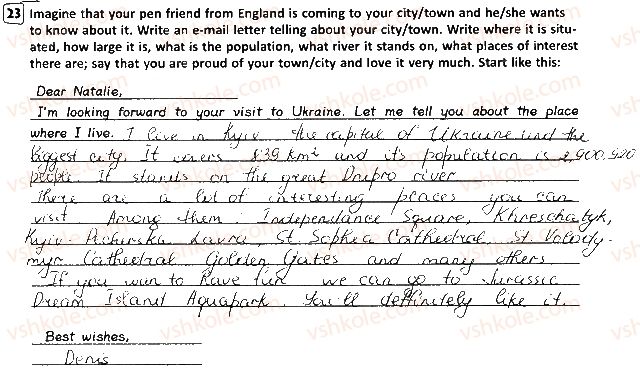 23 Imagine that your pen friend from England is coming to your city/town and he/she wants
to know about it. Write an e-mail letter telling about your city/town. Write where it is situ-
ated, how large it is, what is the population, what river it stands on, what places of interest
there are; say that you are proud of your town/city and love it very much. Start like this:
Dear Natalie,
I'm looking forward to your visit to Ukraine. Let me tell you about the place
where I live. I live in Kyiv the capital of Ukraine and the
biggest city. It covers 839 km² and its population is 2,900,920
people. It stands on the great Dnipro river
There are a lot of interesting places you can
visit Among them: Independance Square, Khreschatyk,
Kyiv-Pecherska Lavra, St. Sophia Cathedral, St Volody-
myr Cathedral Golden Gates and many others
If you wan to have fun we can go to Jurassic
Dream Island Aquapark. You'll definitely like it.
Best wishes,
Denis
vshkole.com